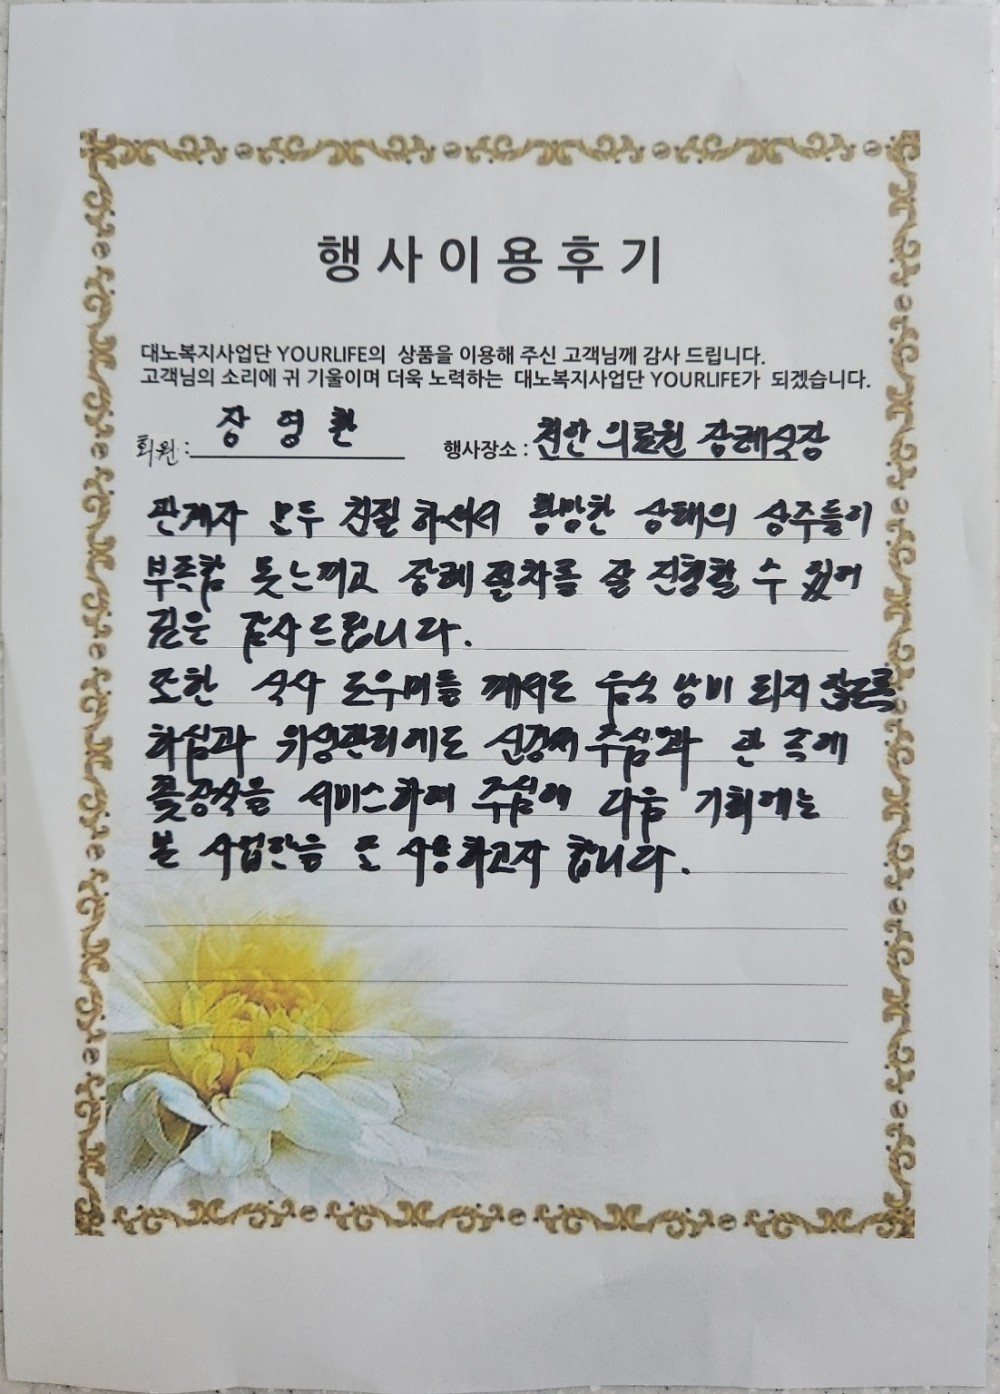 행사이용후기
대노복지사업단 YOURLIFE의 상품을 이용해 주신 고객님께 감사 드립니다.
고객님의 소리에 귀 기울이며 더욱 노력하는 대노복지사업단 YOURLIFE가 되겠습니다.
회원: 장영환 행사장소 : 천안의료원 장례식장
관계자 모두 친절하셔서 황망한 상태의 상주들이
부족함 못느끼고 장례절차를 잘 진행할 수 있어
깊은 감사드립니다.
또한 식사 도우미들 께서도 음식 낭비 되지 않도록
하심과 위생관리에도 신경써 주심과 한 쪽에
꽃장식을 서비스하여 주심에 다음 기회에는
본 사업단을 또 사용하고자 합니다.